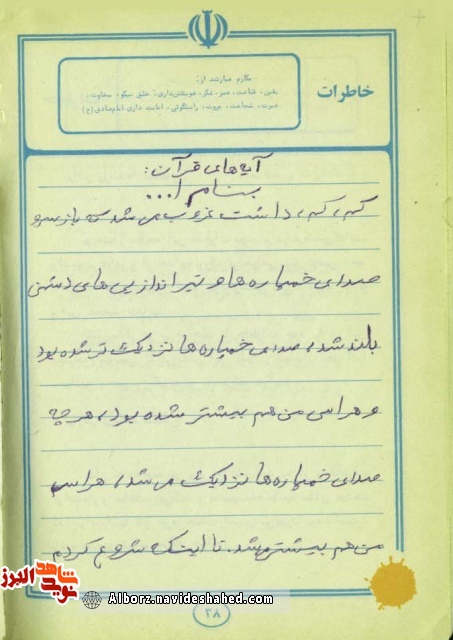 خاطرات
مکارم عبارتند از:
یقین، قناعت، صبر، شکر، خویشتن‌داری، خلق نیکو، سخاوت،
غیرت، شجاعت، مروت، راستگوئی، امانت داری امام صادق (ع)
آیه‌های قرآن:
بنام ا...
کم کم داشت غروب می‌شد که باز سرو
صدای خمپاره‌ها و تیراندازیی‌های دشمن
بلند شد، صدای خمپاره‌ها نزدیک‌تر شده بود
و هراس من هم بیشتر شده بود، هر چه
صدای خمپاره‌ها نزدیک می‌شد، هراس
من هم بیشتر میشد. تا اینکه شروع کردم
شاهد
نوید
البرز
Alborz.navideshahed.com
۳۸